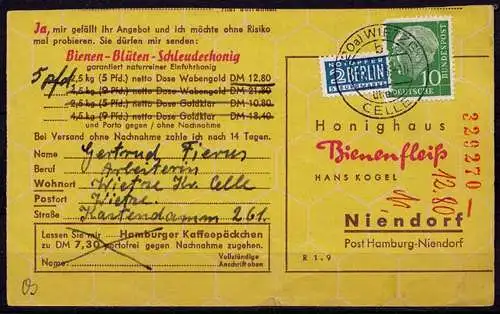 Ja, mir gefällt Ihr Angebot und ich möchte ohne Risiko
mal probieren. Sie dürfen mir senden:
Bienen-Blüten-Schleuderhonig
garantiert naturreiner Einfuhrhonig
5 Pfd.
2,5 kg (5 Pfd.) netto Dose Wabengold DM 12.80
4,5 kg (9 Pfd.) netto Dose Wabengold DM 21.80
2,5 kg (5 Pfd.) netto Dose Goldklar DM 10.80
4,5 kg (9 Pfd.) netto Dose Goldklar DM 18.40
und Porto gegen / ohne Nachnahme
Bei Versand ohne Nachnahme zahle ich nach 14 Tagen.
Name Gertrud
Beruf Arbeiterin
Wohnort Wietze Kr. Celle
Postort Wietze.
Straße Kartendamm 261.
Lesen Sie mir Hamburger Kaffeepäckchen
zu DM 7,30 portofrei gegen Nachnahme zugehen.
Name: Vollständige
Anschrift oben
NOTOPFER
2 BERLIN
STEUERMARKE
b
CELLE
10
DEUTSCHE
BUNDESPOST
Honighaus
Bienenfleiß
HANS KOGEL
12.80
329270
Niendorf
Post Hamburg-Niendorf
R 1.9